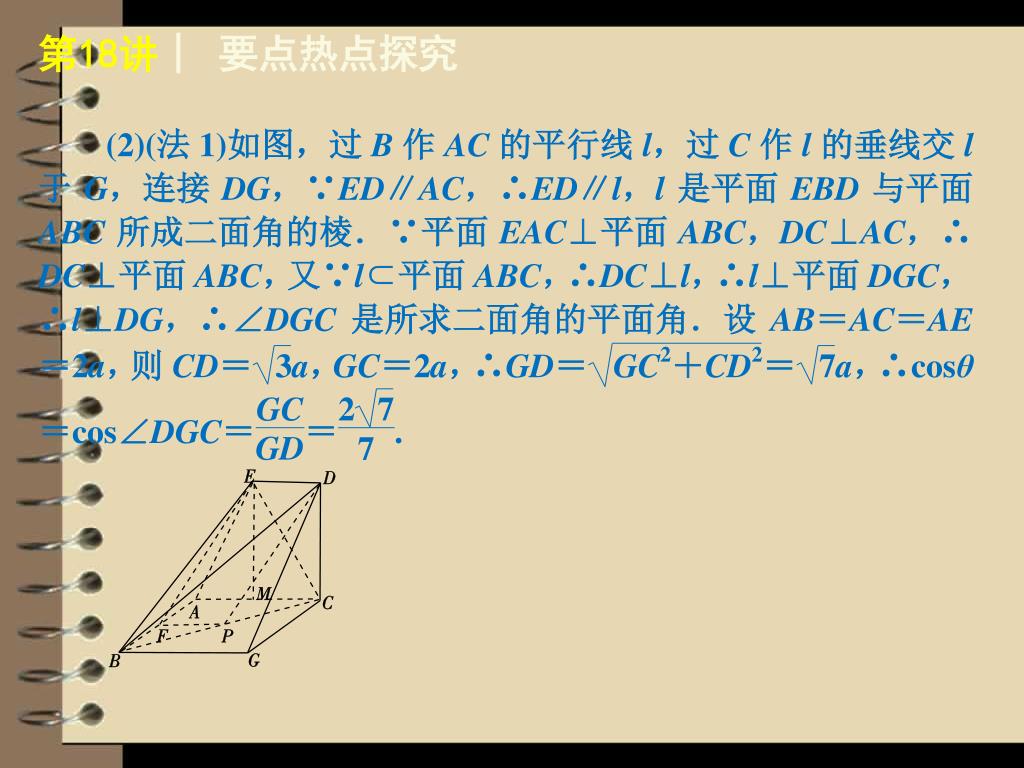 第18讲｜ 要点热点探究
(2)(法 1)如图，过 B 作 AC 的平行线 l，过 C 作 l 的垂线交 l
于 G，连接 DG，∵ED∥AC，∴ED∥l，l 是平面 EBD 与平面
ABC 所成二面角的棱．∵平面 EAC⊥平面 ABC，DC⊥AC，∴
DC⊥平面 ABC，又∵l⊂平面 ABC，∴DC⊥l，∴l⊥平面 DGC，
∴l⊥DG，∴∠DGC 是所求二面角的平面角．设 AB＝AC＝AE
＝2a，则 CD＝√3a，GC＝2a，∴GD＝√(GC²＋CD²)＝√7a，∴cosθ
＝cos∠DGC＝GC/GD＝2√7/7.
E D
A M C
F P
B G